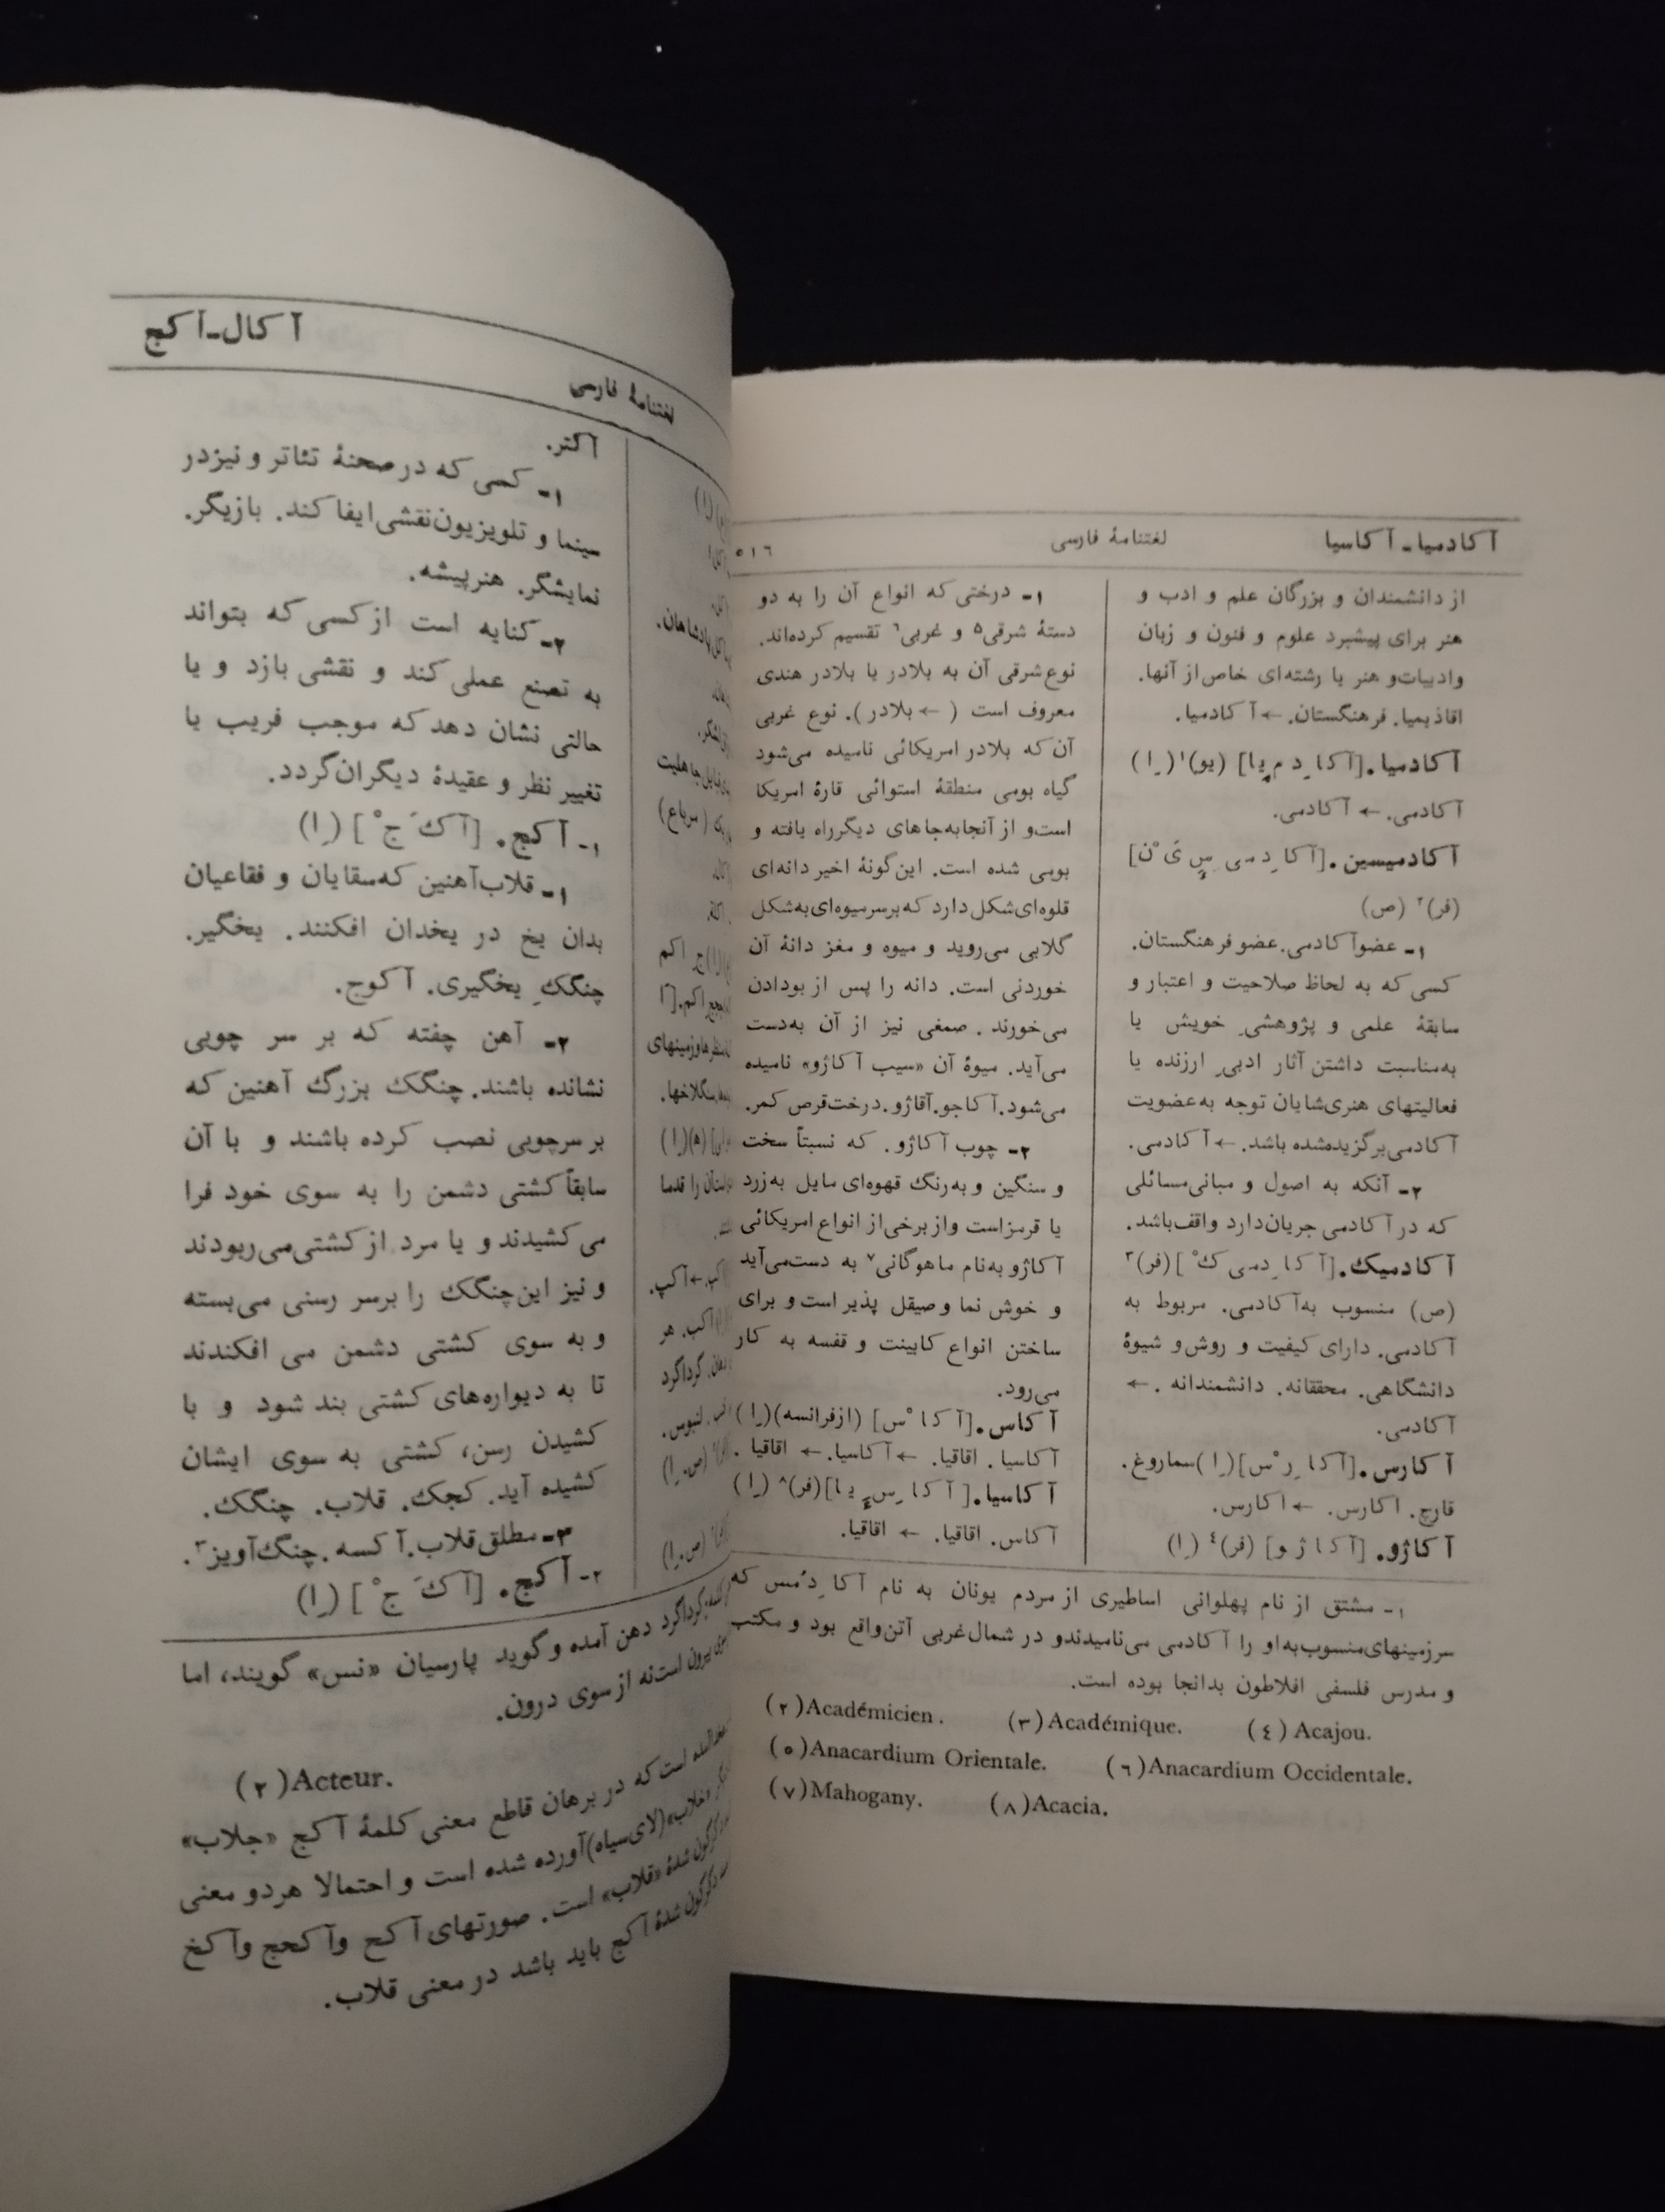 آکادمیا ـ آکاسیا
لغتنامهٔ فارسی
۵۱۶
از دانشمندان و بزرگان علم و ادب و
هنر برای پیشبرد علوم و فنون و زبان
وادبیات و هنر یا رشته‌ای خاص از آنها.
اقاذیمیا. فرهنگستان. ← آکادمیا.
آکادمیا. [آکا ِد م ِیا] (یو)۱ (ِا)
آکادمی. ← آکادمی.
آکادمیسین. [آکا ِد می ِس یَ ْن]
(فر)۲ (ص)
۱ـ عضو آکادمی. عضو فرهنگستان.
کسی که به لحاظ صلاحیت و اعتبار و
سابقهٔ علمی و پژوهشیِ خویش یا
به‌مناسبت داشتن آثار ادبیِ ارزنده یا
فعالیتهای هنری شایان توجه به عضویت
آکادمی برگزیده‌شده باشد. ← آکادمی.
۲ـ آنکه به اصول و مبانی مسائلی
که در آکادمی جریان دارد واقف باشد.
آکادمیک. [آکا ِد می ک ْ] (فر)۳
(ص) منسوب به آکادمی. مربوط به
آکادمی. دارای کیفیت و روش و شیوهٔ
دانشگاهی. محققانه. دانشمندانه. ←
آکادمی.
آکارس. [آکا ِر ْس] (ِا) سماروغ.
قارچ. اکارس. ← اکارس.
آکاژو. [آکا ژ و] (فر)٤ (ِا)
۱ـ درختی که انواع آن را به دو
دستهٔ شرقی۵ و غربی٦ تقسیم کرده‌اند.
نوع شرقی آن به بلادر یا بلادر هندی
معروف است (← بلادر). نوع غربی
آن که بلادر امریکائی نامیده می‌شود
گیاه بومی منطقهٔ استوائی قارهٔ امریکا
است و از آنجا به جاهای دیگر راه یافته و
بومی شده است. این گونهٔ اخیر دانه‌ای
قلوه‌ای شکل دارد که بر سر میوه‌ای به شکل
گلابی می‌روید و میوه و مغز دانهٔ آن
خوردنی است. دانه را پس از بودادن
می‌خورند. صمغی نیز از آن به‌دست
می‌آید. میوهٔ آن «سیب آکاژو» نامیده
می‌شود. آکاجو. آقاژو. درخت قرص کمر.
۲ـ چوب آکاژو. که نسبتاً سخت
و سنگین و به رنگ قهوه‌ای مایل به زرد
یا قرمز است و از برخی از انواع امریکائی
آکاژو به‌نام ماهوگانی۷ به دست می‌آید
و خوش نما و صیقل پذیر است و برای
ساختن انواع کابینت و قفسه به کار
می‌رود.
آکاس. [آکا ْس] (از فرانسه) (ِا)
آکاسیا. اقاقیا. ← آکاسیا. ← اقاقیا.
آکاسیا. [آکا ِس یا] (فر)۸ (ِا)
آکاس. اقاقیا. ← اقاقیا.
۱ـ مشتق از نام پهلوانی اساطیری از مردم یونان به نام آکا ِدُمس که
سرزمینهای منسوب به او را آکادمی می‌نامیدند و در شمال غربی آتن واقع بود و مکتب
و مدرس فلسفی افلاطون بدانجا بوده است.
(۲) Académicien. (۳) Académique. (٤) Acajou.
(۵) Anacardium Orientale. (٦) Anacardium Occidentale.
(۷) Mahogany. (۸) Acacia.
آکال ـ آکج
لغتنامهٔ فارسی
آکتر.
۱ـ کسی که در صحنهٔ تئاتر و نیز در
سینما و تلویزیون نقشی ایفا کند. بازیگر.
نمایشگر. هنرپیشه.
۲ـ کنایه است از کسی که بتواند
به تصنع عملی کند و نقشی بازد و یا
حالتی نشان دهد که موجب فریب یا
تغییر نظر و عقیدهٔ دیگران گردد.
۱ـ آکج. [آ کَ ج ْ] (ِا)
۱ـ قلاب آهنین که سقایان و فقاعیان
بدان یخ در یخدان افکنند. یخگیر.
چنگکِ یخگیری. آکوج.
۲ـ آهن چفته که بر سر چوبی
نشانده باشند. چنگک بزرگ آهنین که
بر سر چوبی نصب کرده باشند و با آن
سابقاً کشتی دشمن را به سوی خود فرا
می‌کشیدند و یا مرد از کشتی می‌ربودند
و نیز این چنگک را بر سر رسنی می‌بسته
و به سوی کشتی دشمن می افکندند
تا به دیواره‌های کشتی بند شود و با
کشیدن رسن، کشتی به سوی ایشان
کشیده آید. کجک. قلاب. چنگک.
۳ـ مطلق قلاب. آکسه. چنگ آویز۳.
۲ـ آکج. [آ کَ ج ْ] (ِا)
گرداگرد دهن آمده و گوید پارسیان «نس» گویند، اما
بیرون است نه از سوی درون.
(۲) Acteur.
است که در برهان قاطع معنی کلمهٔ آکج «جلاب»
«خلاب» (لای سیاه) آورده شده است و احتمالا هر دو معنی
شدهٔ «قلاب» است. صورتهای آکح و آکحج و آکخ
دگرگون شدهٔ آکج باید باشد در معنی قلاب.